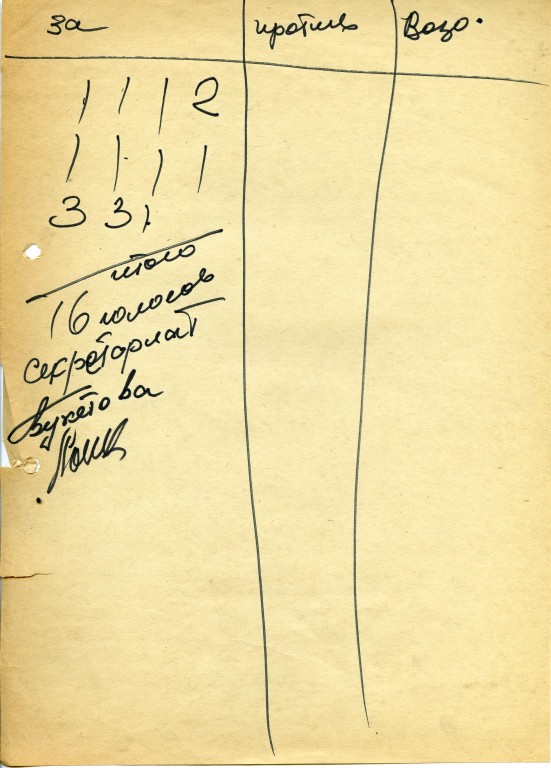 за против Возд.
1 1 1 2
1 1 1 1
3 3 1
итого
16 голосов
секретариат
Букетова